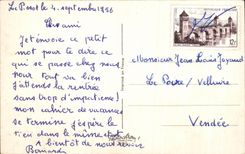 Le Poiré le 4. septembre 1956
Cher ami
Je t'envoie ce petit
mot pour te dire ce
qui se passe chez nous
pour tout va bien
j'attends la rentrée
sans trop d'impatience !
mon cahier de vacances
se termine j'espère le
tien dans le même état
A bientôt de nous revoir
Bernard
Monsieur Jean Louis
Le Poiré / Velluire
Vendée
12F